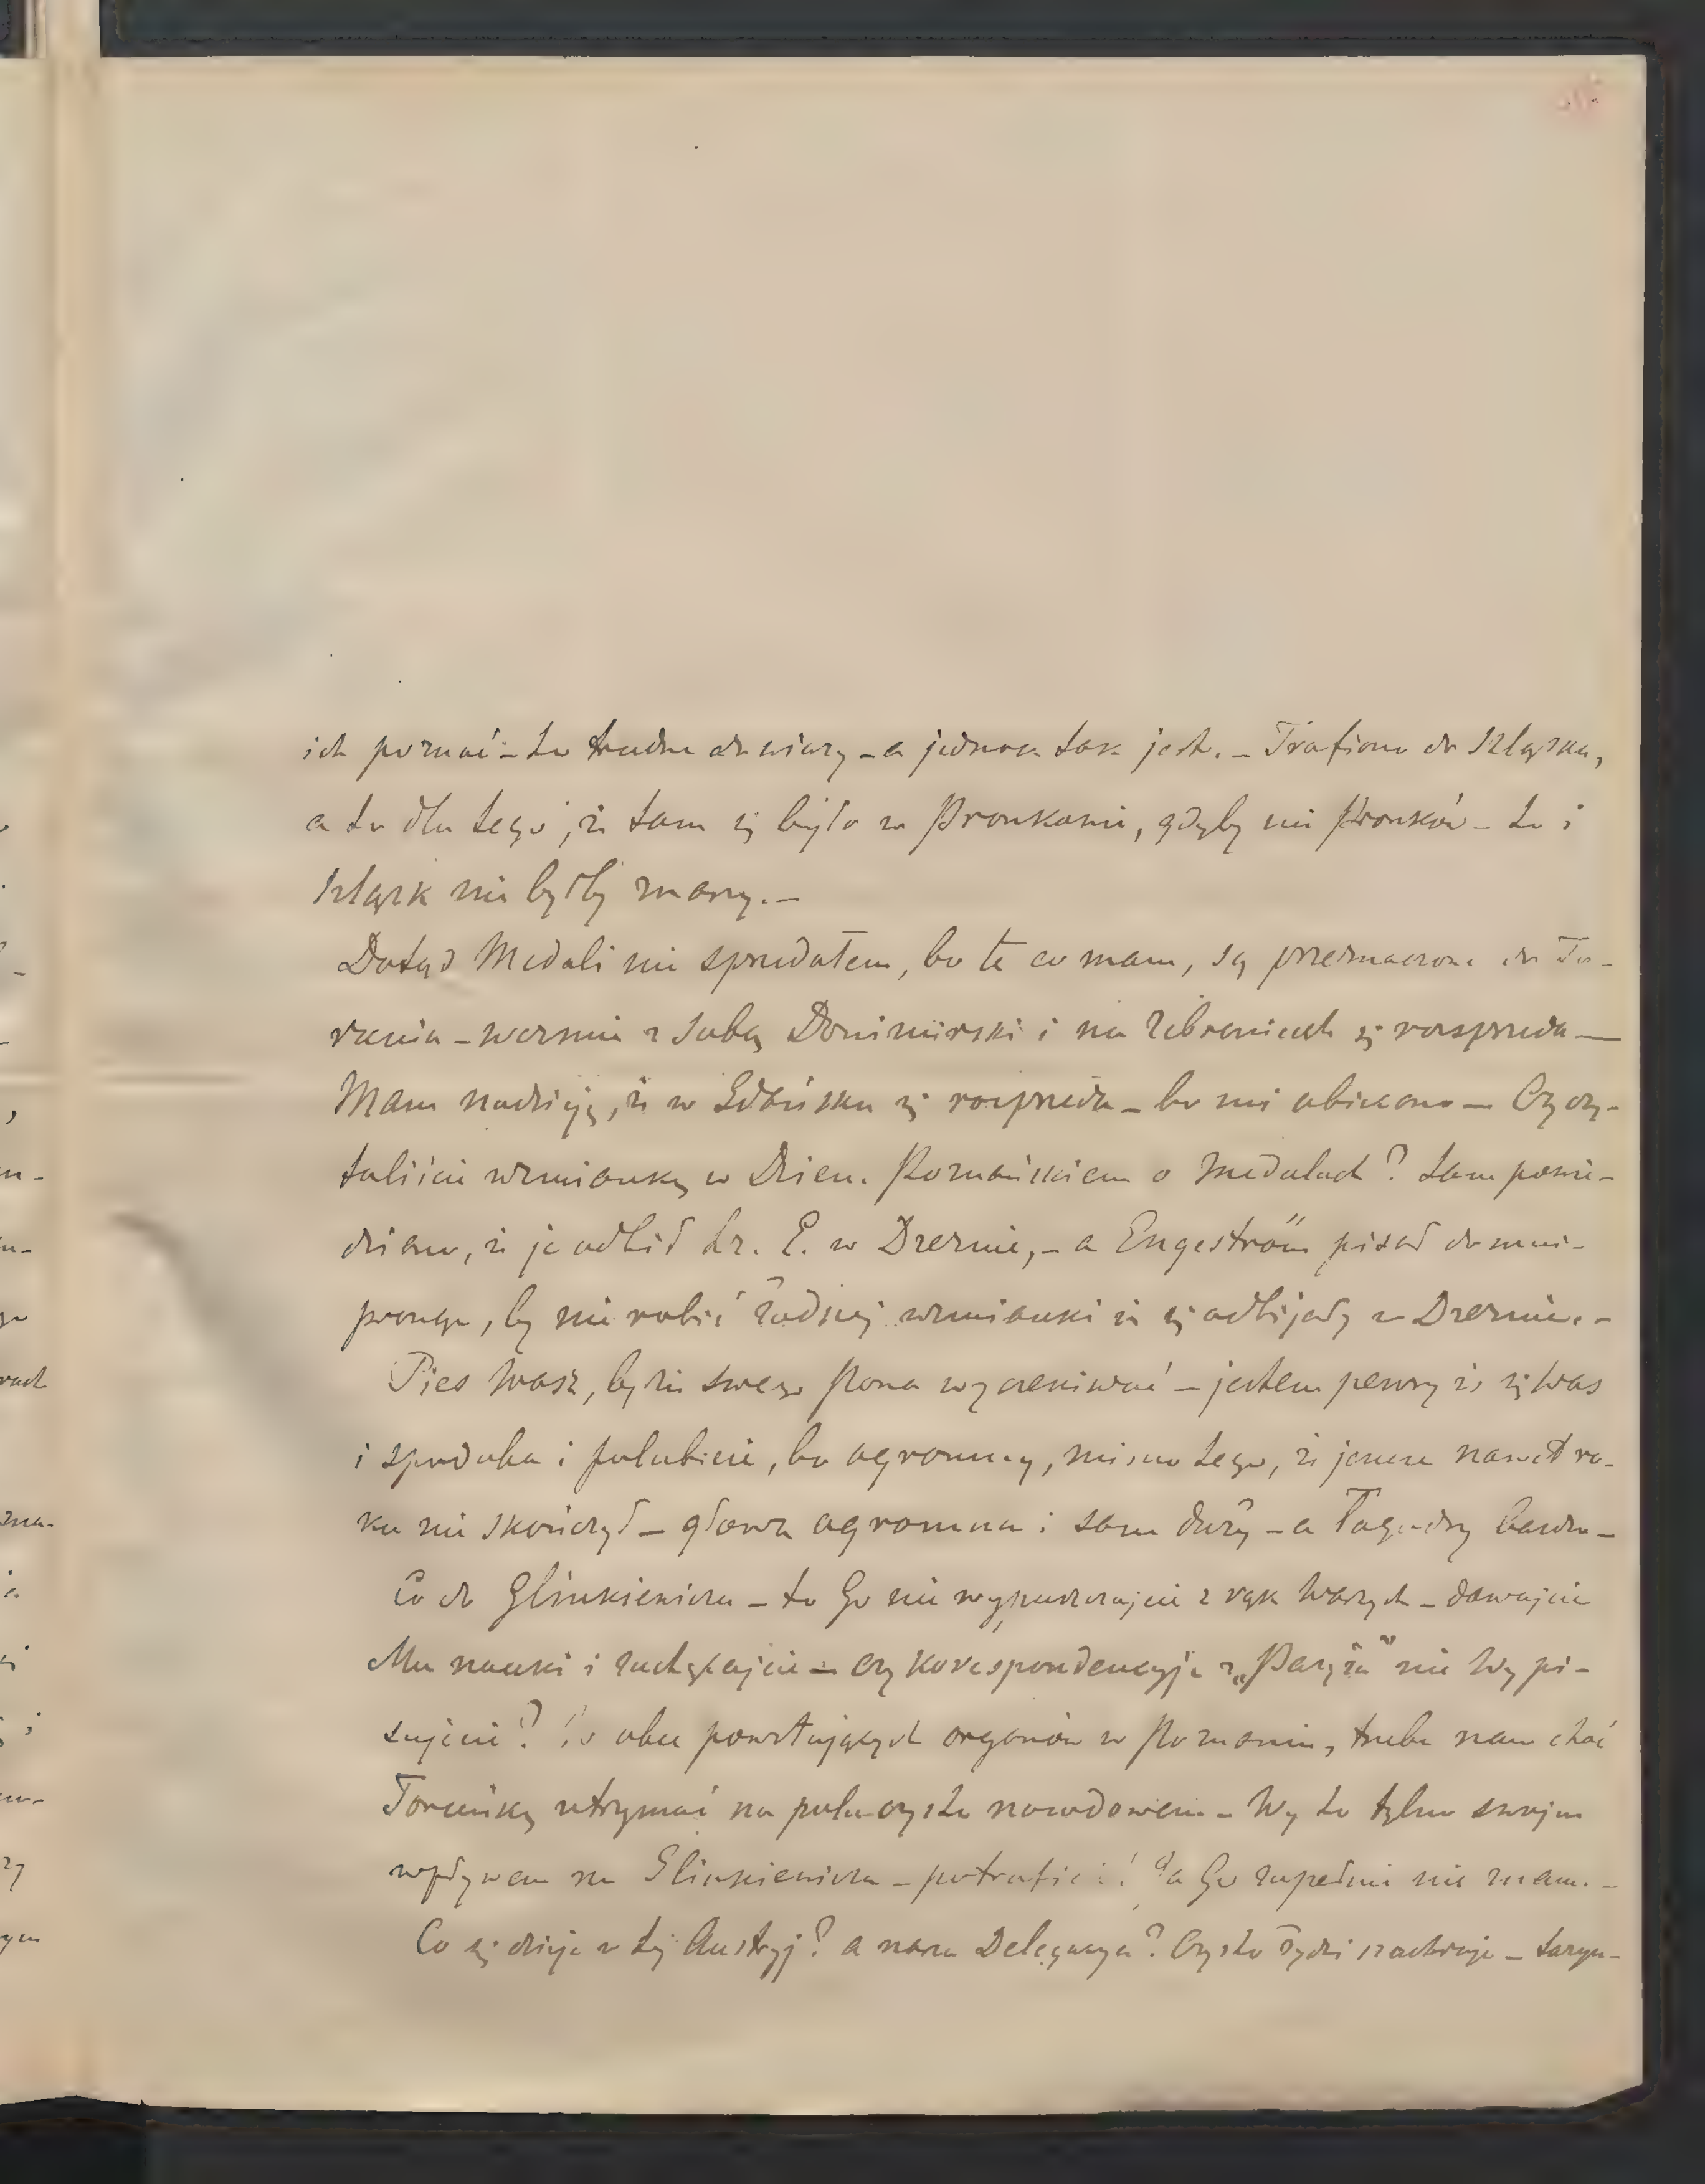 ich poznać – to trudno do wiary – a jednak tak jest. – Trafiono do Szląska,
a to dla tego, że tam się było w Prouskami, gdyby nie Prousków – to i
Szląsk nie byłby znany. –
Dotąd Medali nie sprzedałem, bo te co mam, są przeznaczone do To-
runia – wezmie z sobą Donimirski i na zebraniach się rozsprzeda –
Mam nadzieję, że w Gdańsku się rozprzeda – bo mi obiecano – Czy czy-
taliście wzmiankę w Dzien. Poznańskiem o Medalach? tam powie-
dziano, że je odbił hr. E. w Dreznie, – a Engeström pisał do mnie –
prosząc, by nie robić żadnej wzmianki że się odbijały w Dreznie. –
Pies Wasz, będzie swego Pana wyczekiwać – jestem pewny że się Was
i spodoba i polubicie, bo ogromny, mimo tego, że jeszcze nawet ro-
ku nie skończył – głowa ogromna i sam duży – a łagodny bardzo –
Co do Glinkiewicza – to Go nie wypuszczajcie z rąk Waszych – dawajcie
Mu nauki i zachęcajcie – czy korespondencyje z „Paryża" nie Wy pi-
sujecie? obu powstających organów w Poznaniu, trzeba nam choć
Toruńską utrzymać na polu czysto narodowem – Wy to tylko swojem
wpływem na Glinkiewicza – potraficie! Ja Go zupełnie nie znam. –
Co się dzieje w tej Austryj? a nasza Delegacya? Czysto Żydzi szachruje – targu-